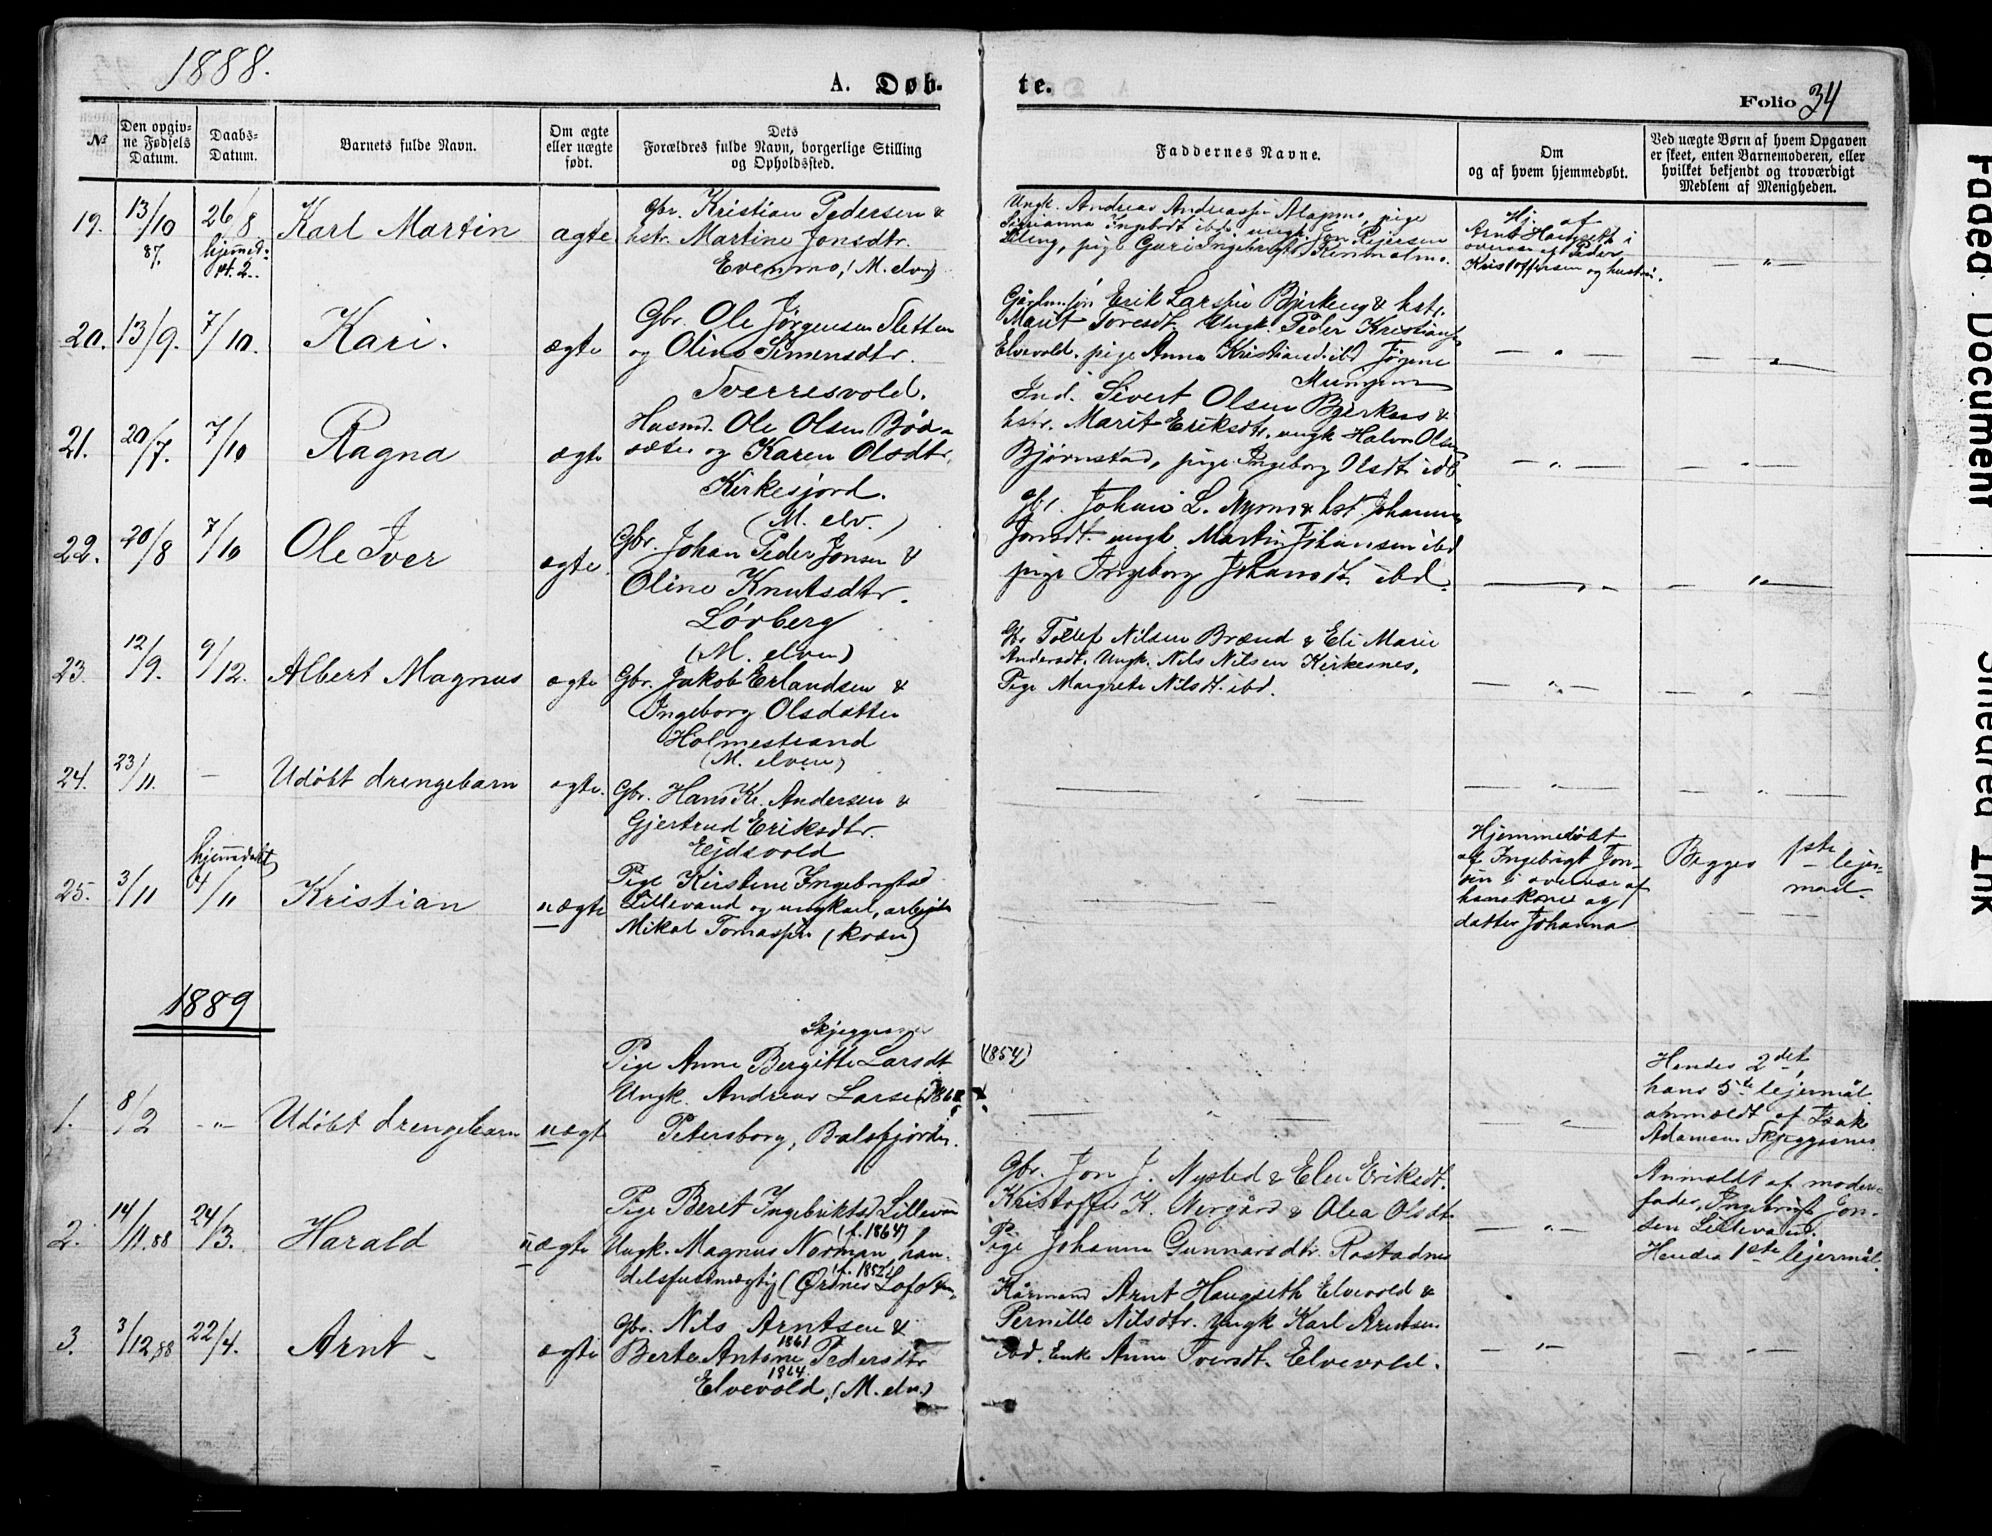 1888.
A. Døb-
te.
Folio 34
№
Den opgiv-
ne Fødsels
Datum.
Daabs-
Datum.
Barnets fulde Navn.
Om ægte
eller uægte
født.
Dets
Forældres fulde Navn, borgerlige Stilling
og Opholdssted.
Faddernes Navne.
Om
og af hvem hjemmedøbt.
Ved uægte Børn af hvem Opgaven
er skeet, enten Barnemoderen, eller
hvilket bekjendt og troværdigt
Medlem af Menigheden.
19.
13/10
87.
26/8
hjemmed.
Karl Martin
ægte
Gbr. Kristian Pedersen &
hstr. Martine Jonsdtr.
Evenmo, (M. elv)
Ungk. Andreas Andreassen pige
ibd. ungk. Jon Pedersen
pige Guri
Hj. af
Arnt Haugseth i
overvær af Peder
Kristoffersen og hustru.
— " —
20.
13/9.
7/10.
Kari.
ægte
Gbr. Ole Jørgensen Sletten
og Oline Simensdtr.
Sverresvold.
Erik Larsen Bjerkeng & hstr.
Marit Toresdt. Ungk. Peder Kristians
Elvevold. pige Anna Kristiansd. ibd Jørgine
— " —
— " —
21.
20/7.
7/10
Ragna
ægte
Husmd. Ole Olsen Bød-
sæter og Karen Olsdtr.
Kirkesjord.
(M. elv.)
Ind. Sivert Olsen Bjerkaas &
hstr. Marit Eriksdtr. ungk Halvor Olsen
Bjørnstad, pige Ingeborg Olsdt. ibd
— " —
— " —
22.
20/8
7/10
Ole Iver
ægte
Gbr. Johan Peder Jonsen &
Oline Knutsdtr.
Lørberg
(M. elven)
Gbr. Johan L. Nymo & hst. Johanna
Jonsdt. ungk. Martin Johansen ibd
pige Ingeborg Johansdt. ibd.
— " —
— " —
23.
12/9.
9/12.
Albert Magnus
ægte
Gbr. Jakob Erlandsen &
Ingeborg Olsdatter
Holmestrand
(M. elven)
Gbr Tollef Nilsen Brænd & Eli Marie
Andersdt. Ungk. Nils Nilsen Kirkesnes,
Pige Margrete Nilsdt. ibd.
— " —
— " —
24.
23/11.
—
Udøbt drengebarn
ægte.
Gbr. Hans Kr. Andersen &
Gjertrud Eriksdtr.
Ejdsvold
— " —
— " —
— " —
25.
3/11
hjemmedøbt
4/11
Kristian
uægte
Pige Kirstine Ingebrigtsd
Lillevand og ungkarl, arbejder
Mikal Tomassen (kvæn)
— " —
Hjemmedøbt
af Ingebrigt Jon-
sen i overvær af
hans kone og
datter Johanna
Begges 1ste lejer-
maal.
1889
1.
8/2
— " —
Udøbt drengebarn
uægt
Skjeggesnes
Pige Anne Bergitte Larsdt
(1854)
Ungk. Andreas Larsen
Petersborg, Balsfjorden.
— " —
— " —
Hendes 2det,
hans 5te lejermål
anmældt af Isak
Adamsen Skjeggesnes
2.
14/11.88
24/3.
Harald
uægte
Pige Beret Ingebriktsd Lillevan
(f. 1864)
Ungk. Magnus Norman, han-
(f. 1852)
delsfuldmægtig (Ørsnes Lofoten)
Gbr. Jon J. Nysted & Elen Eriksdt.
Kristoffer K. Nergård & Olea Olsdt
Pige Johanna Gunnarsdtr. Rostadnes
— " —
Anmeldt af moder-
fader, Ingebrigt Jon-
sen Lillevand.
Hendes 1ste lejermål.
3.
3/12,88
22/4.
Arnt
ægte
Gbr. Nils Arntsen &
1861
Berte Antone Pedersdtr
1864.
Elvevold, (M. elv.)
Kårmand Arnt Haugseth Elvevold &
Pernille Nilsdtr. Ungk Karl Arntsen
ibd. Enke Anne Iversdt. Elvevold.
— " —
— " —
Faded Document
Smeared Ink